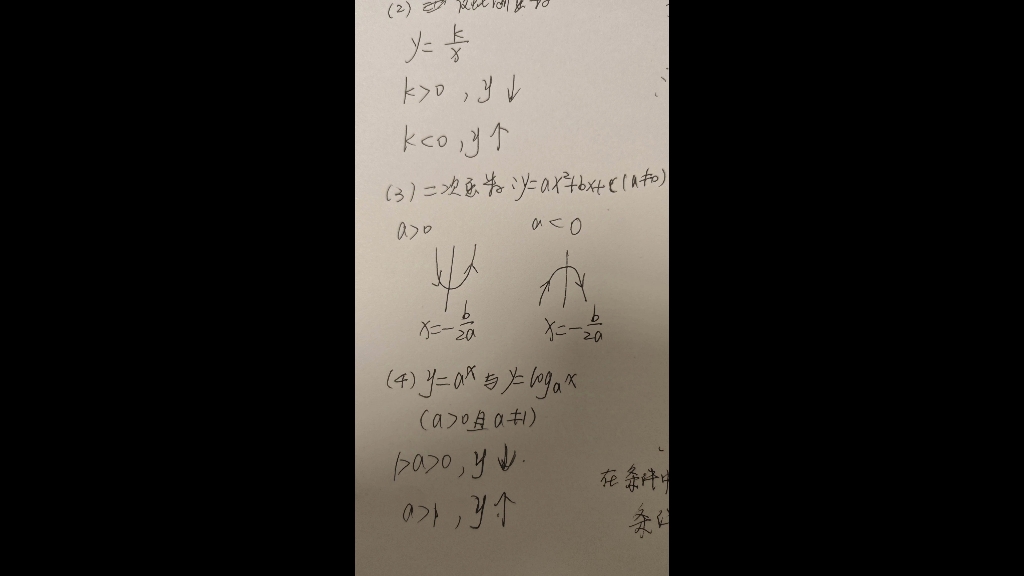 (2)
y = k/x
k>0 , y↓
k<0 , y↑
(3) 二次函数 : y=ax²+bx+c (a≠0)
a>0 a<0
x=-b/2a x=-b/2a
(4) y=aˣ 与 y=logₐx
(a>0且a≠1)
1>a>0 , y↓.
a>1 , y↑
在条件中
条